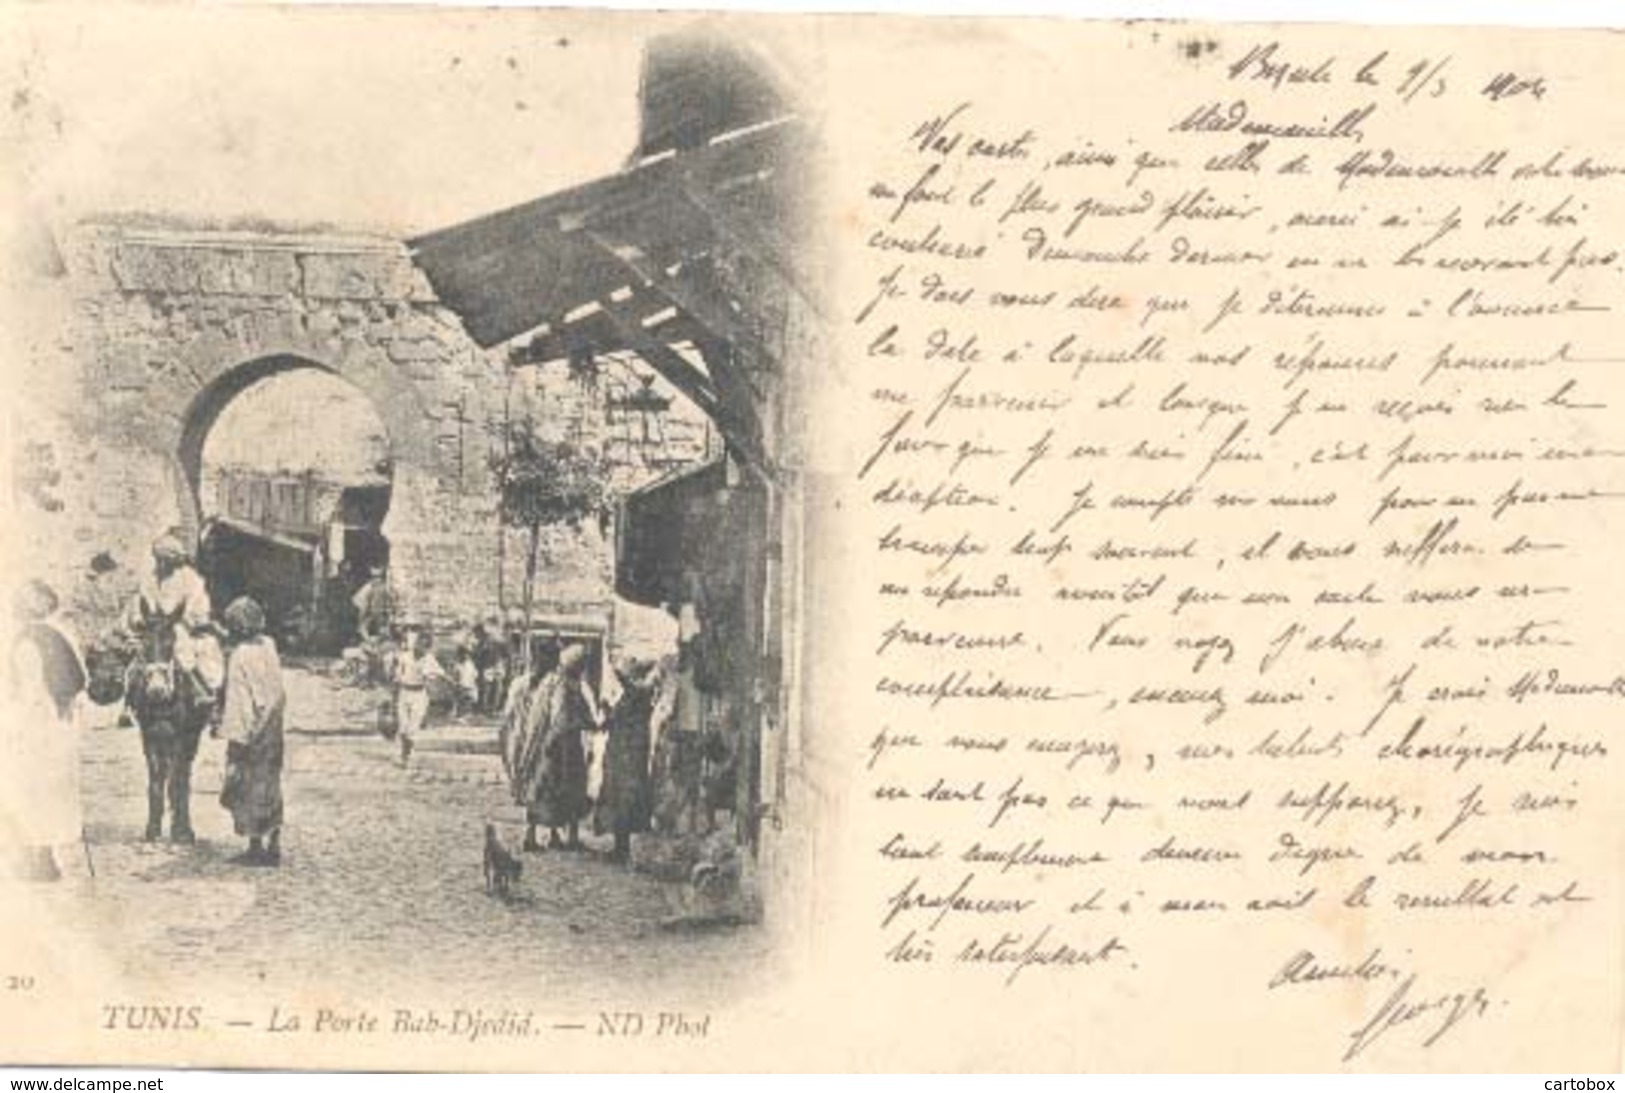 le 9/3 1904
Mademoiselle
Vos cartes, ainsi que celles de Mademoiselle votre
me font le plus grand plaisir, aussi ai-je été très
Dimanche dernier en ne les recevant pas.
Je dois vous dire que je détermine à l'avance
la date à laquelle vos réponses pourront
me parvenir et lorsque je ne reçois rien le
jour que je me suis fixé, c'est pour moi une
déception. Je compte sur vous pour ne pas me
tromper trop souvent, il vous suffira de
me répondre aussitôt que ma carte vous sera
parvenue. Vous voyez j'abuse de votre
complaisance, excusez moi. Je crois Mademoiselle
que vous exagérez, mes talents chorégraphiques
ne sont pas ce que vous supposez, je suis
tout simplement devenu digne de mon
professeur et à mon avis le résultat est
très satisfaisant.
Amitiés
Georges
20
TUNIS. — La Porte Bab-Djedid. — ND Phot
www.delcampe.net
cartobox